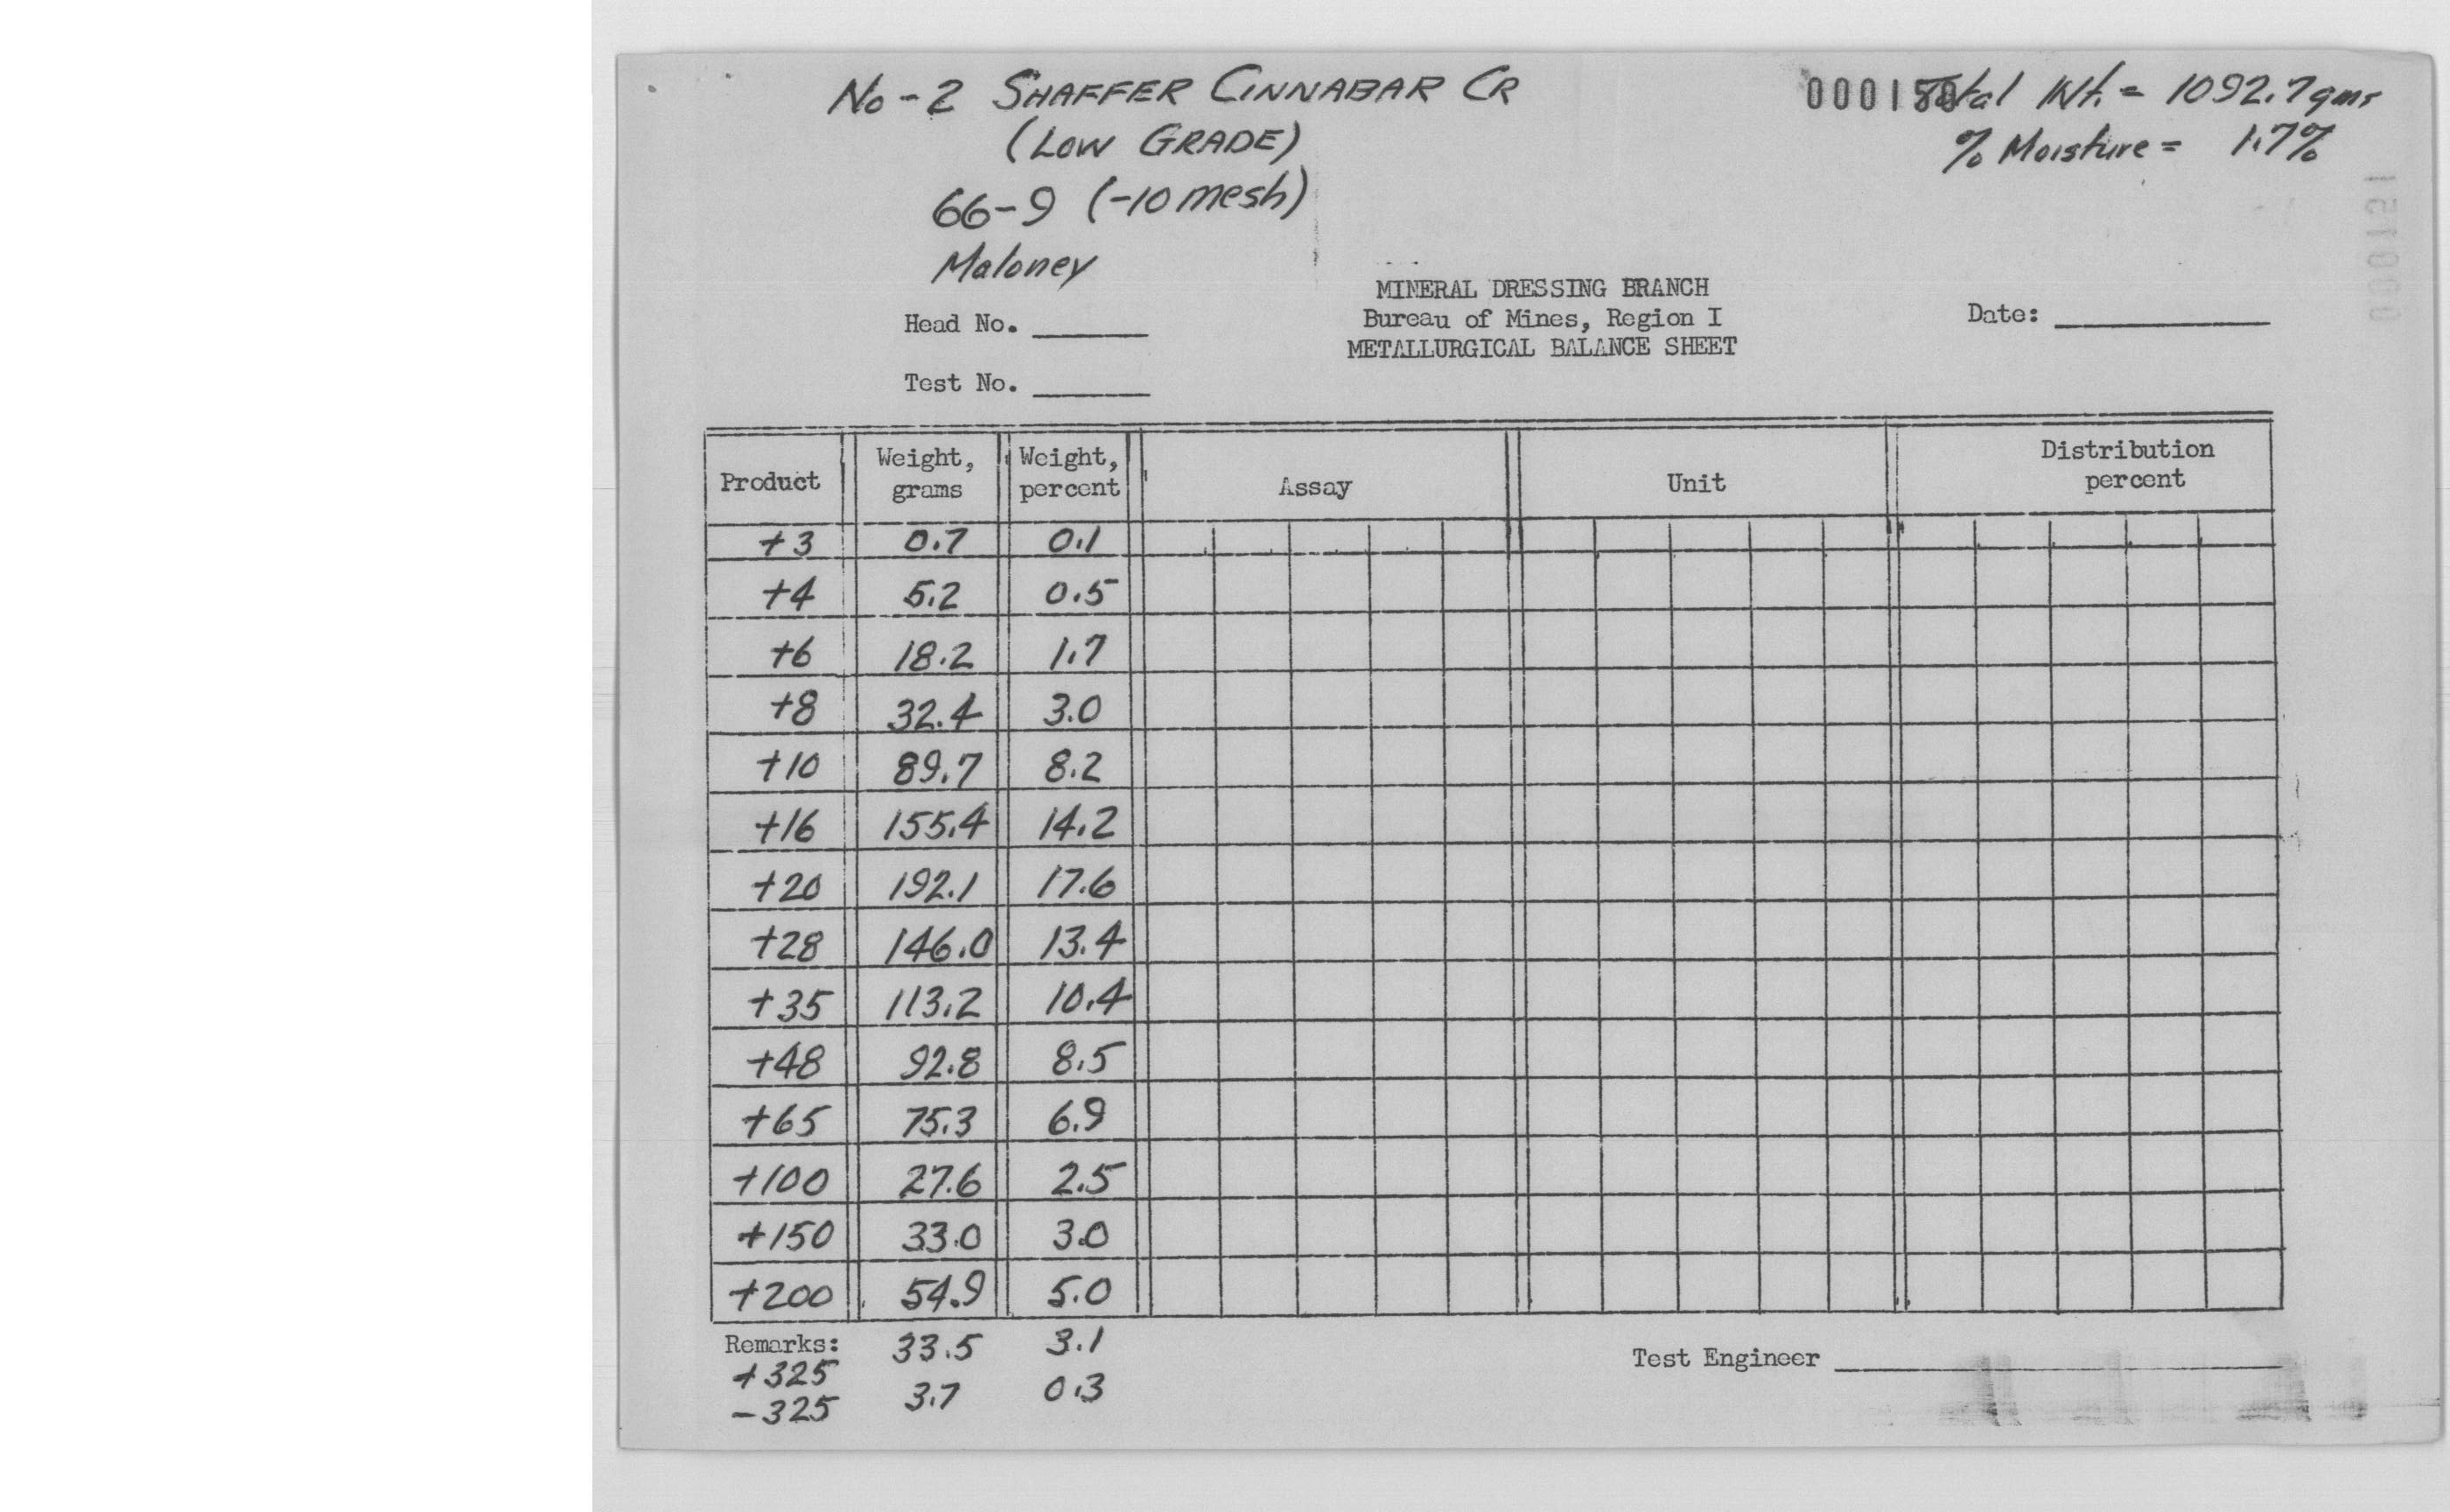 No-2 SHAFFER CINNABAR CR
(LOW GRADE)
66-9 (-10 mesh)
Maloney
Total Wt. = 1092.7 gms
% Moisture = 1.7%
000151
MINERAL DRESSING BRANCH
Bureau of Mines, Region I
METALLURGICAL BALANCE SHEET
Head No.
Test No.
Date:
Product Weight, grams Weight, percent Assay Unit Distribution percent
+3 0.7 0.1
+4 5.2 0.5
+6 18.2 1.7
+8 32.4 3.0
+10 89.7 8.2
+16 155.4 14.2
+20 192.1 17.6
+28 146.0 13.4
+35 113.2 10.4
+48 92.8 8.5
+65 75.3 6.9
+100 27.6 2.5
+150 33.0 3.0
+200 54.9 5.0
Remarks:
+325 33.5 3.1
-325 3.7 0.3
Test Engineer